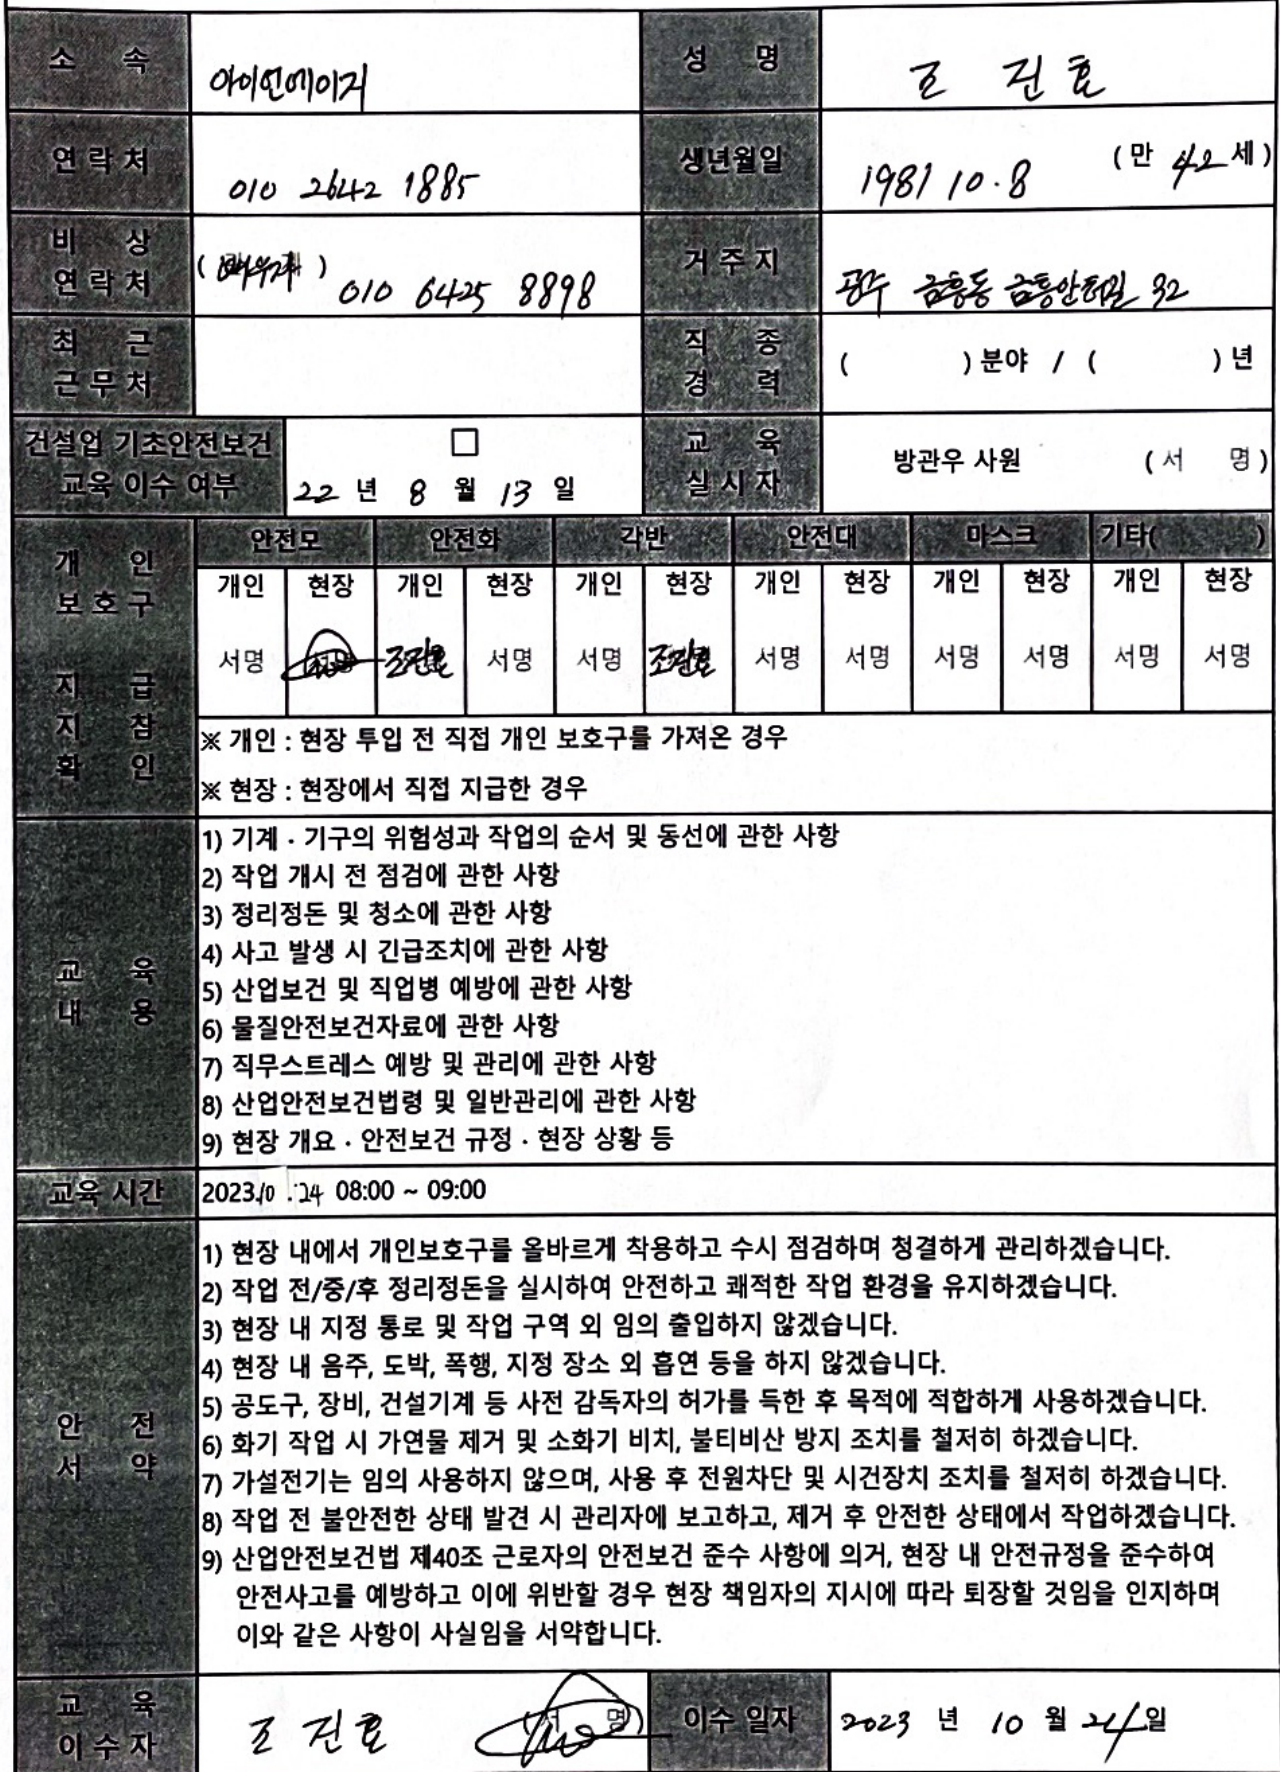 소 속 아이앤에이지 성 명 조 진호
연락처 010 2642 1885 생년월일 1981 10.8 (만 42세)
비 상 연락처 (배우자) 010 6425 8898 거주지 공주 금흥동 32
최 근 근무처 직 종 경 력 ( )분야 / ( )년
건설업 기초안전보건 교육 이수 여부 □ 22 년 8 월 13 일 교 육 실시자 방관우 사원 (서 명)
개 인 보호구 지 급 지 참 확 인
안전모 안전화 각반 안전대 마스크 기타( )
개인 현장 개인 현장 개인 현장 개인 현장 개인 현장 개인 현장
서명 서명 조진호 서명 서명 조진호 서명 서명 서명 서명 서명 서명
※ 개인 : 현장 투입 전 직접 개인 보호구를 가져온 경우
※ 현장 : 현장에서 직접 지급한 경우
교 육 내 용
1) 기계 · 기구의 위험성과 작업의 순서 및 동선에 관한 사항
2) 작업 개시 전 점검에 관한 사항
3) 정리정돈 및 청소에 관한 사항
4) 사고 발생 시 긴급조치에 관한 사항
5) 산업보건 및 직업병 예방에 관한 사항
6) 물질안전보건자료에 관한 사항
7) 직무스트레스 예방 및 관리에 관한 사항
8) 산업안전보건법령 및 일반관리에 관한 사항
9) 현장 개요 · 안전보건 규정 · 현장 상황 등
교육 시간 2023.10.24 08:00 ~ 09:00
안 전 서 약
1) 현장 내에서 개인보호구를 올바르게 착용하고 수시 점검하며 청결하게 관리하겠습니다.
2) 작업 전/중/후 정리정돈을 실시하여 안전하고 쾌적한 작업 환경을 유지하겠습니다.
3) 현장 내 지정 통로 및 작업 구역 외 임의 출입하지 않겠습니다.
4) 현장 내 음주, 도박, 폭행, 지정 장소 외 흡연 등을 하지 않겠습니다.
5) 공도구, 장비, 건설기계 등 사전 감독자의 허가를 득한 후 목적에 적합하게 사용하겠습니다.
6) 화기 작업 시 가연물 제거 및 소화기 비치, 불티비산 방지 조치를 철저히 하겠습니다.
7) 가설전기는 임의 사용하지 않으며, 사용 후 전원차단 및 시건장치 조치를 철저히 하겠습니다.
8) 작업 전 불안전한 상태 발견 시 관리자에 보고하고, 제거 후 안전한 상태에서 작업하겠습니다.
9) 산업안전보건법 제40조 근로자의 안전보건 준수 사항에 의거, 현장 내 안전규정을 준수하여
안전사고를 예방하고 이에 위반할 경우 현장 책임자의 지시에 따라 퇴장할 것임을 인지하며
이와 같은 사항이 사실임을 서약합니다.
교 육 이수자 조 진호 (서 명) 이수 일자 2023 년 10 월 24 일